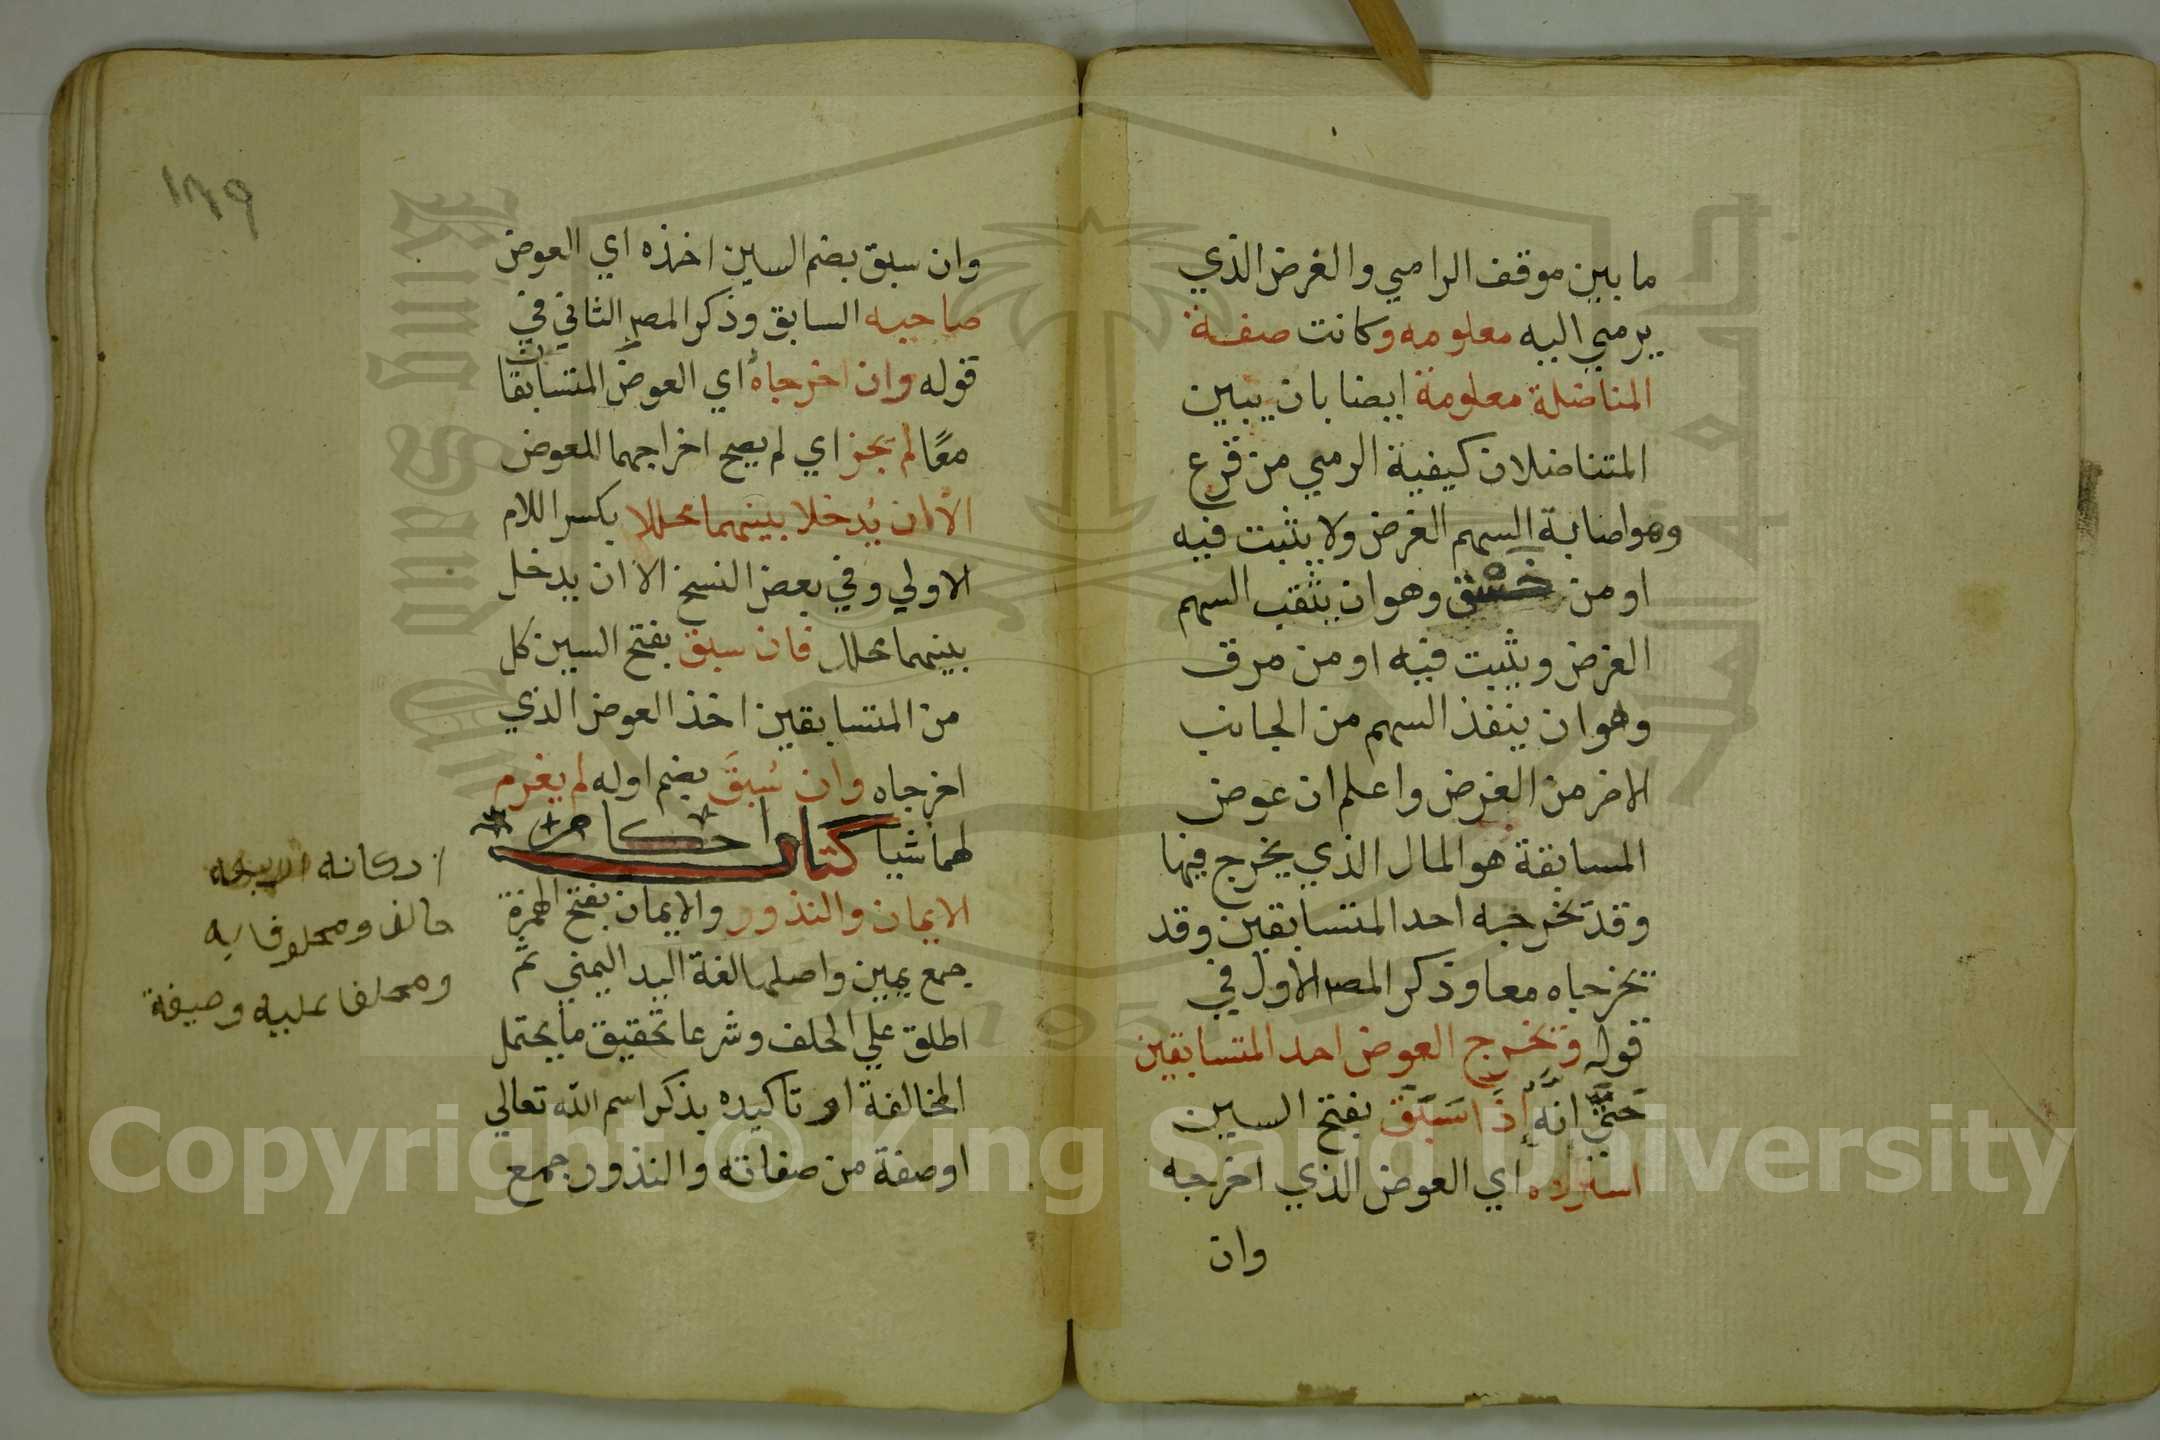 ما بين موقف الرامي والغرض الذي
يرمي اليه معلومه وكانت صفة
المناضلة معلومة ايضا بان يبين
المتناضلان كيفية الرمي من قرع
وهو اصابة السهم الغرض ولا يثبت فيه
او من خسق وهو ان يثقب السهم
الغرض ويثبت فيه او من مرق
وهو ان ينفذ السهم من الجانب
الاخر من الغرض واعلم ان عوض
المسابقة هو المال الذي يخرج فيها
وقد يخرجه احد المتسابقين وقد
يخرجاه معا وذكر المص الاول في
قوله ويخرج العوض احد المتسابقين
حَتيَّ انَّه إِذَا سَبَقَ بفتح السين
استرده اي العوض الذي اخرجه
وان
١٣٩
وان سبق بضم السين اخذه اي العوض
صاحبه السابق وذكر المص الثاني في
قوله وان اخرجاه اي العوض المتسابقان
معًا لم يجز اي لم يصح اخراجهما للعوض
الا ان يُدخلا بينهما محللا بكسر اللام
الاولي وفي بعض النسخ الا ان يدخل
بينهما محلل فان سبق بفتح السين كل
من المتسابقين اخذ العوض الذي
اخرجاه وان سُبِقَ بضم اوله لم يغرم
لهما شيا كتاب احكام
الايمان والنذور والايمان بفتح الهمزة
جمع يمين واصلها لغة اليد اليمني ثم
اطلق علي الحلف وشرعا تحقيق ما يحتمل
المخالفة او تاكيده بذكر اسم الله تعالي
او صفة من صفاته والنذور جمع
اركانه اربعه
حالف ومحلوف به
ومحلوف عليه وصيغة
King Saud University
جامعة الملك سعود
1957
Copyright © King Saud University